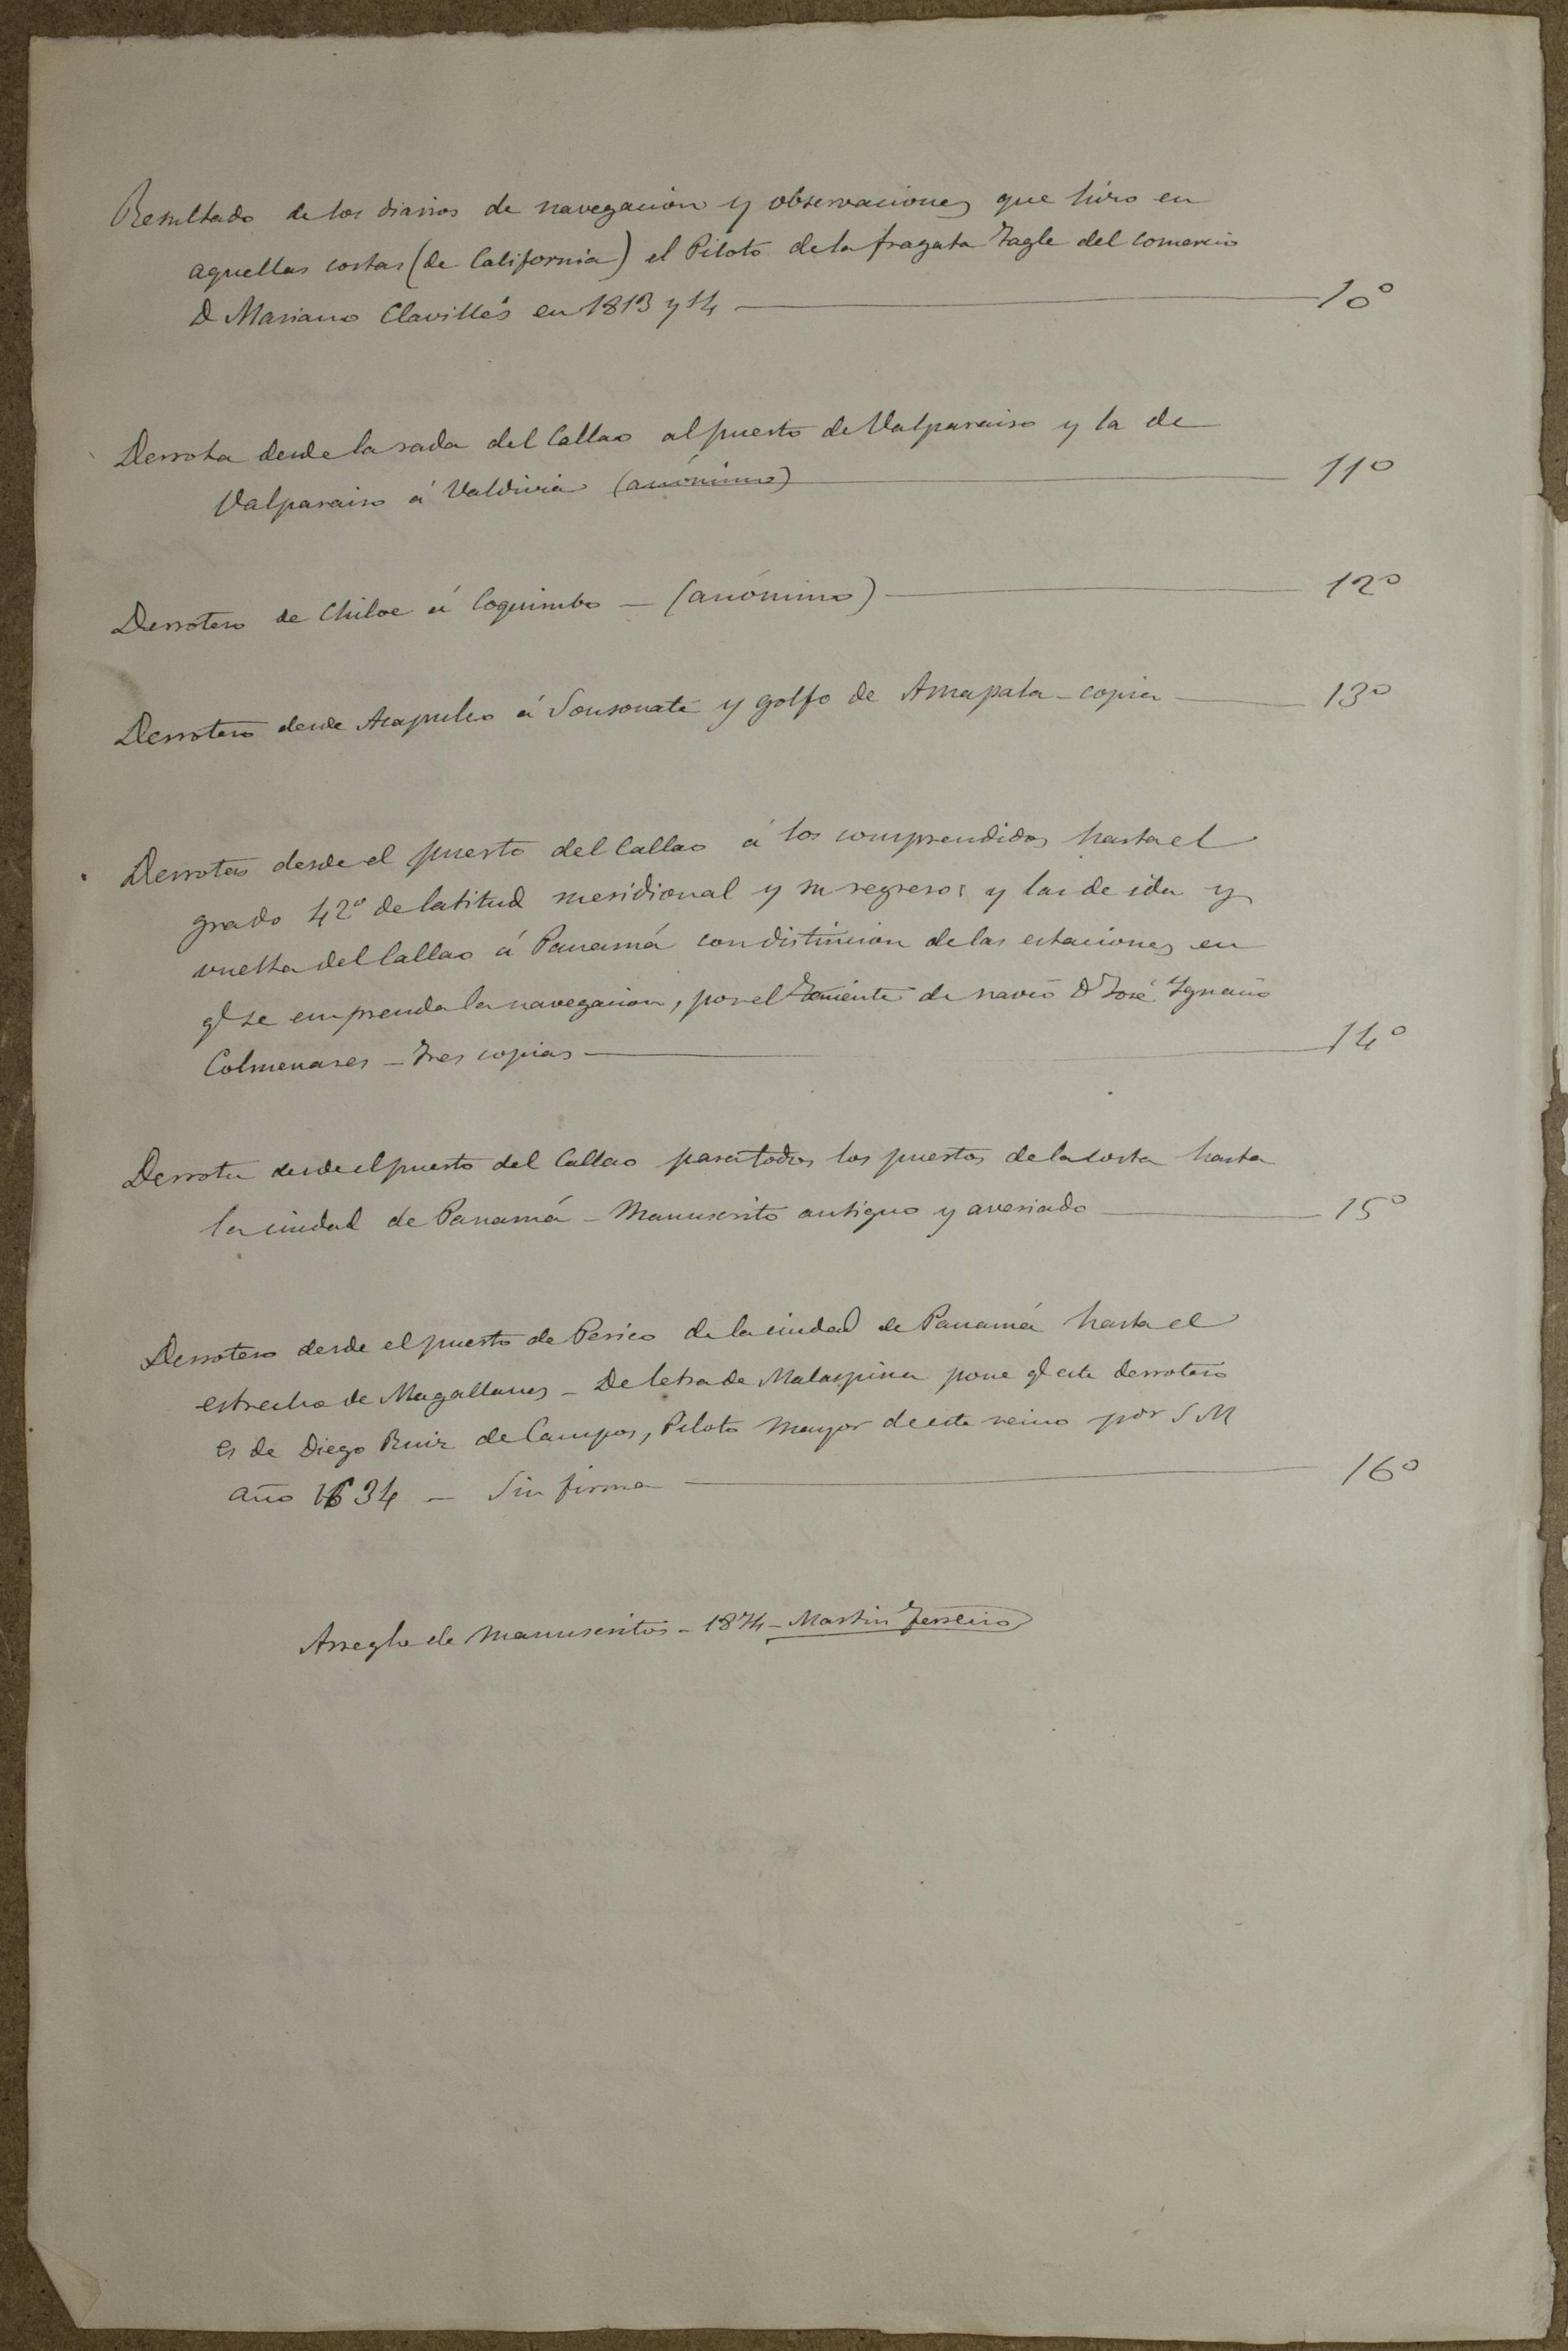 Resultado de los diarios de navegacion y observaciones que hizo en
aquellas costas (de California) el Piloto de la fragata Tagle del comercio
D Mariano Clavillés en 1813 y 14 — 10º
Derrota desde la rada del Callao al puerto de Valparaiso y la de
Valparaiso á Valdivia (anónimo) — 11º
Derrotero de Chiloe á Coquimbo — (anónimo) — 12º
Derrotero desde Acapulco á Sonsonate y golfo de Amapala - copia — 13º
Derrotas desde el puerto del Callao á los comprendidos hasta el
grado 42º de latitud meridional y su regreso; y las de ida y
vuelta del Callao á Panamá con distincion de las estaciones en
q.e se emprenda la navegacion, por el Teniente de navio D José Ignacio
Colmenares - Tres copias — 14º
Derrota desde el puerto del Callao para todos los puertos de la costa hasta
la ciudad de Panamá - Manuscrito antiguo y averiado — 15º
Derrotero desde el puerto de Perico de la ciudad de Panamá hasta el
estrecho de Magallanes - De letra de Malaspina pone q.e este derrotero
es de Diego Ruiz de Campos, Piloto mayor de este reino por S M
año 1634 — Sin firma — 16º
Arreglo de manuscritos - 1874 - Martin Ferreiro